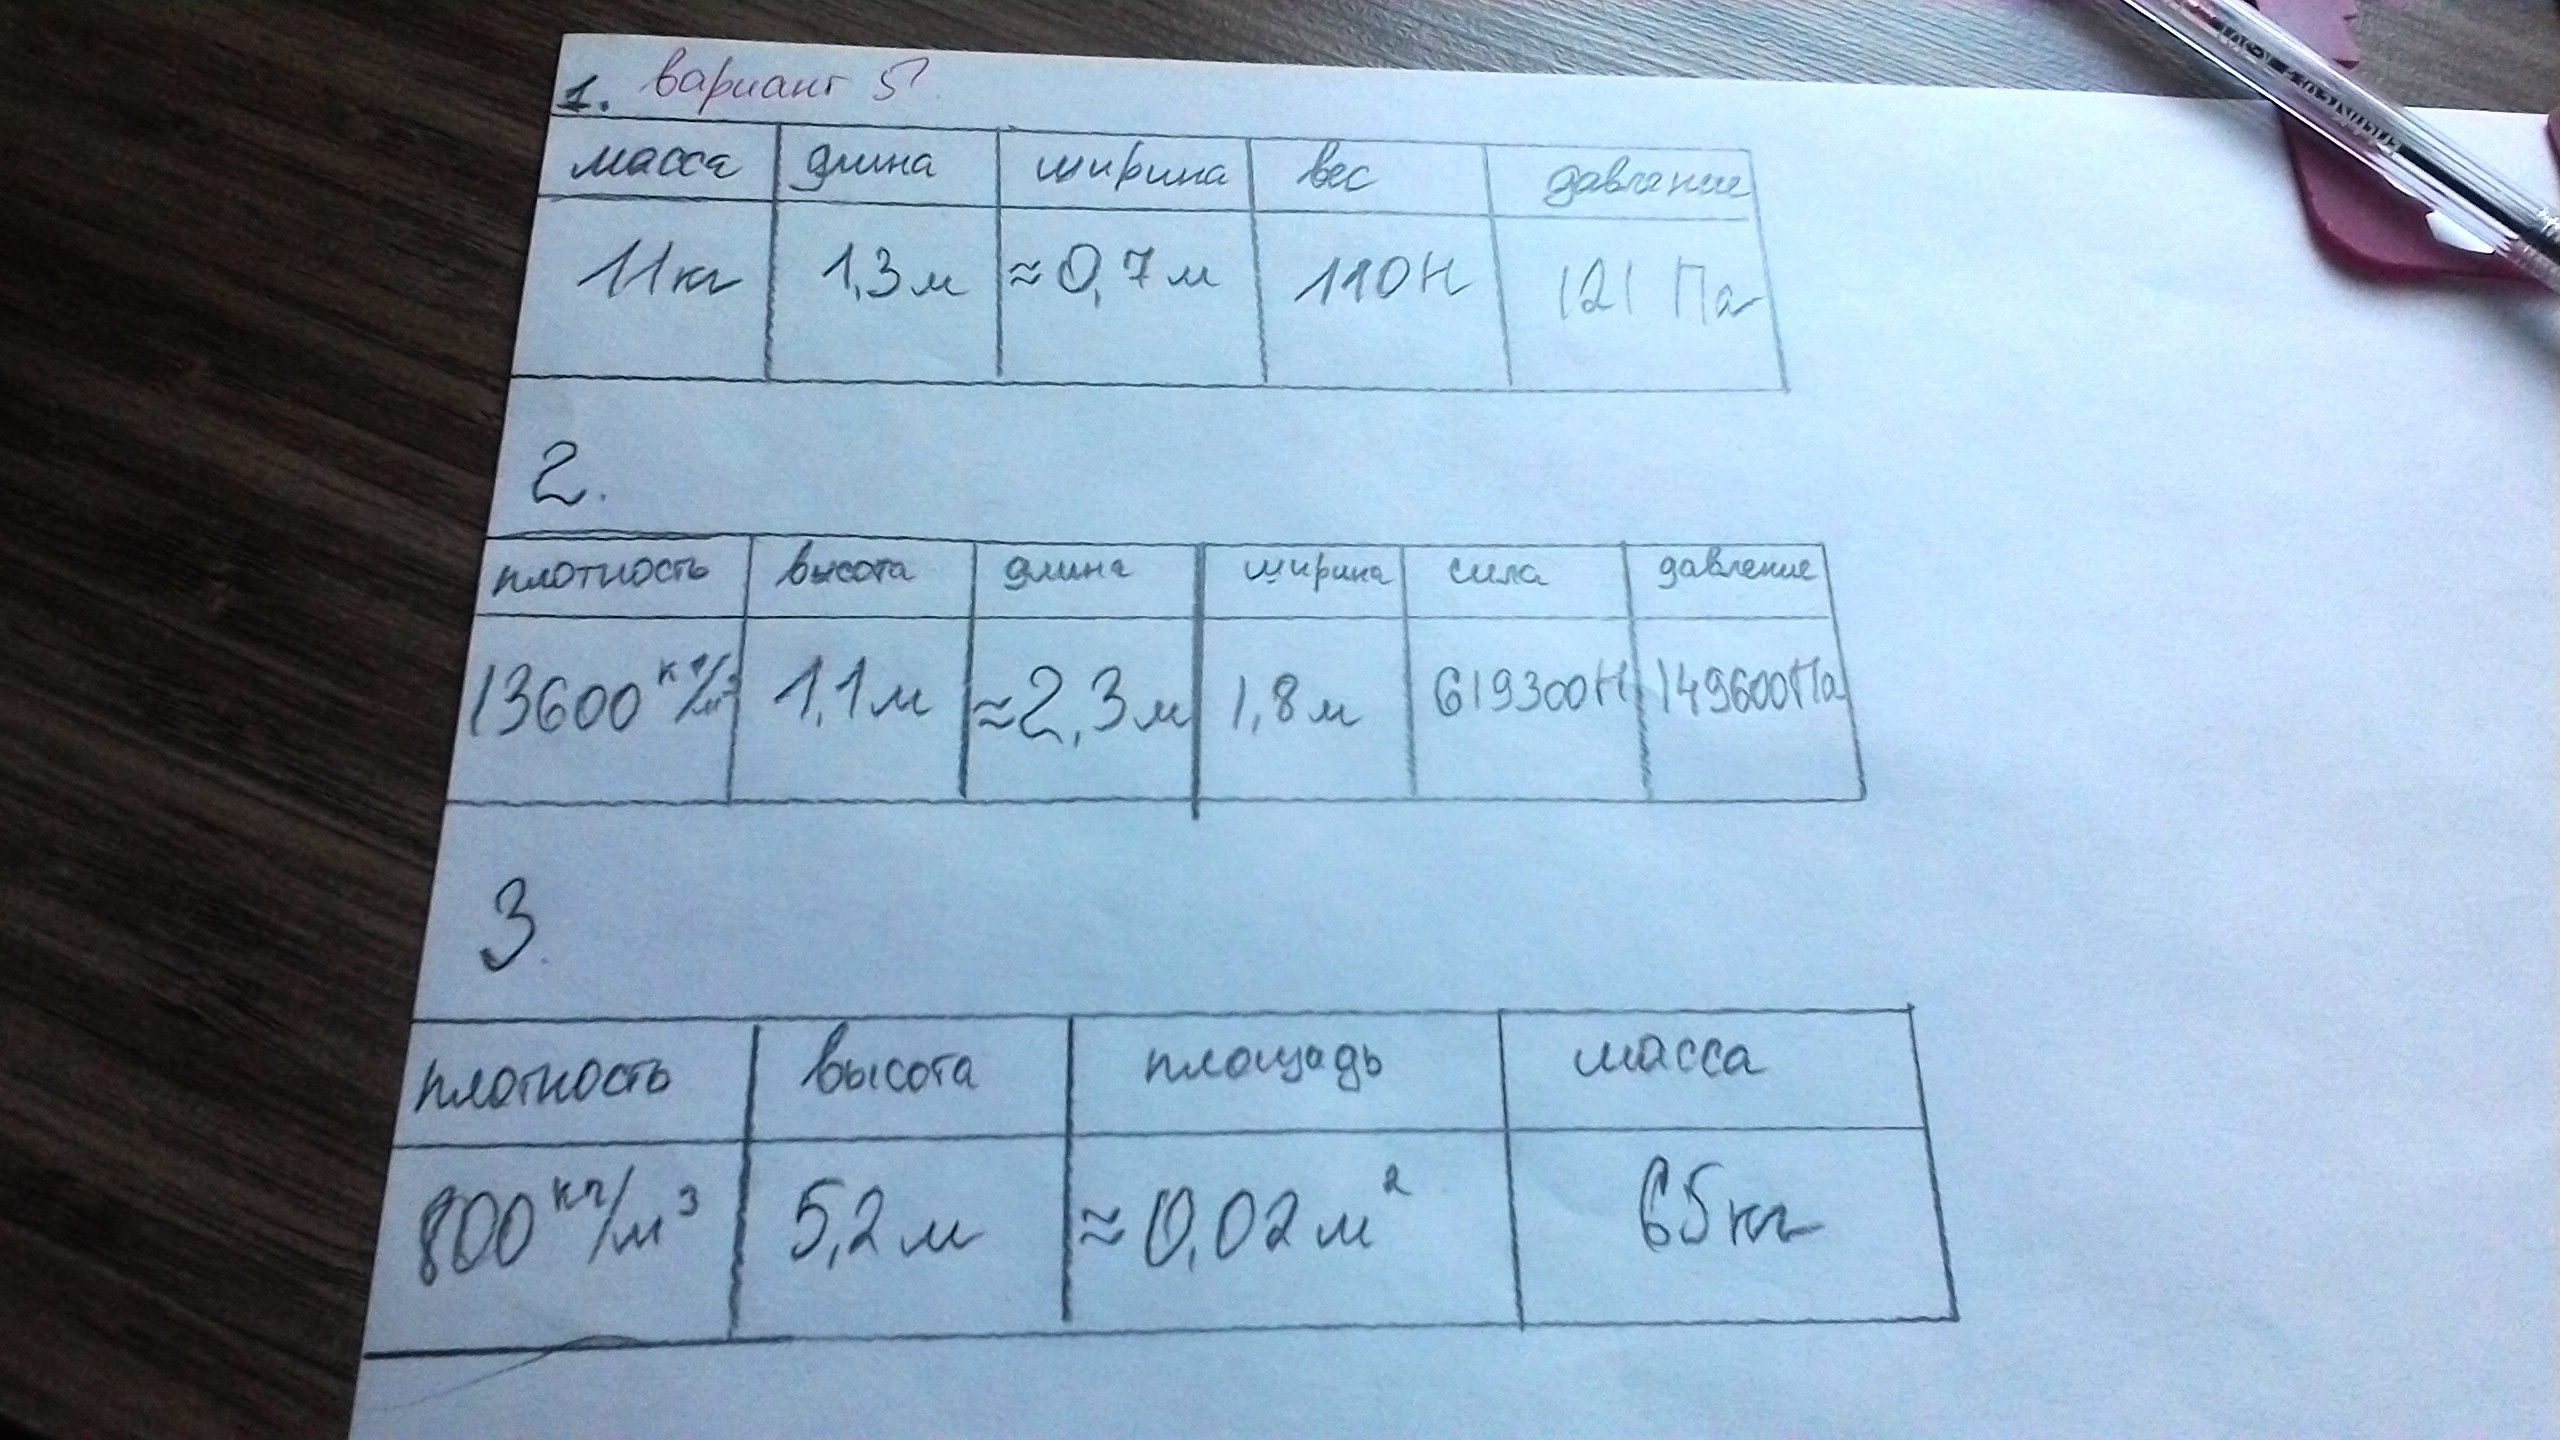 1. вариант 5
масса длина ширина вес давление
11кг 1,3м ≈0,7м 110Н 121 Па
2.
плотность высота длина ширина сила давление
13600 кг/м³ 1,1м ≈2,3м 1,8м 619300Н 149600Па
3.
плотность высота площадь масса
800 кг/м³ 5,2м ≈0,02м² 65кг